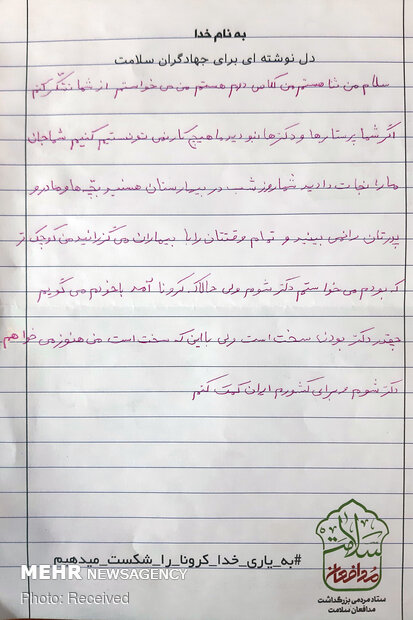 به نام خدا
دل نوشته ای برای جهادگران سلامت
سلام من ثنا هستم من کلاس دوم هستم من می خواستم از شما تشکر کنم
اگر شما پرستارها و دکترها نبودید ما هیچ کار نمی تونستیم کنیم شما جان
ما را نجات دادید شما روز شب در بیمارستان هستید بچّه ها و مادر و
پدرتان را نمی بینید و تمام وقتتان را با بیماران می گزرانید من کوچک تر
که بودم می خواستم دکتر شوم ولی حالا که کرونا آمد با خودم می گویم
چقدر دکتر بودن سخت است ولی با این که سخت است من هنوز می خواهم
دکتر شوم و برای کشورم ایران کمک کنم
#به_یاری_خدا_کرونا_را_شکست_میدهیم
MEHR NEWSAGENCY
Photo: Received
مدافعان سلامت
ستاد مردمی بزرگداشت
مدافعان سلامت